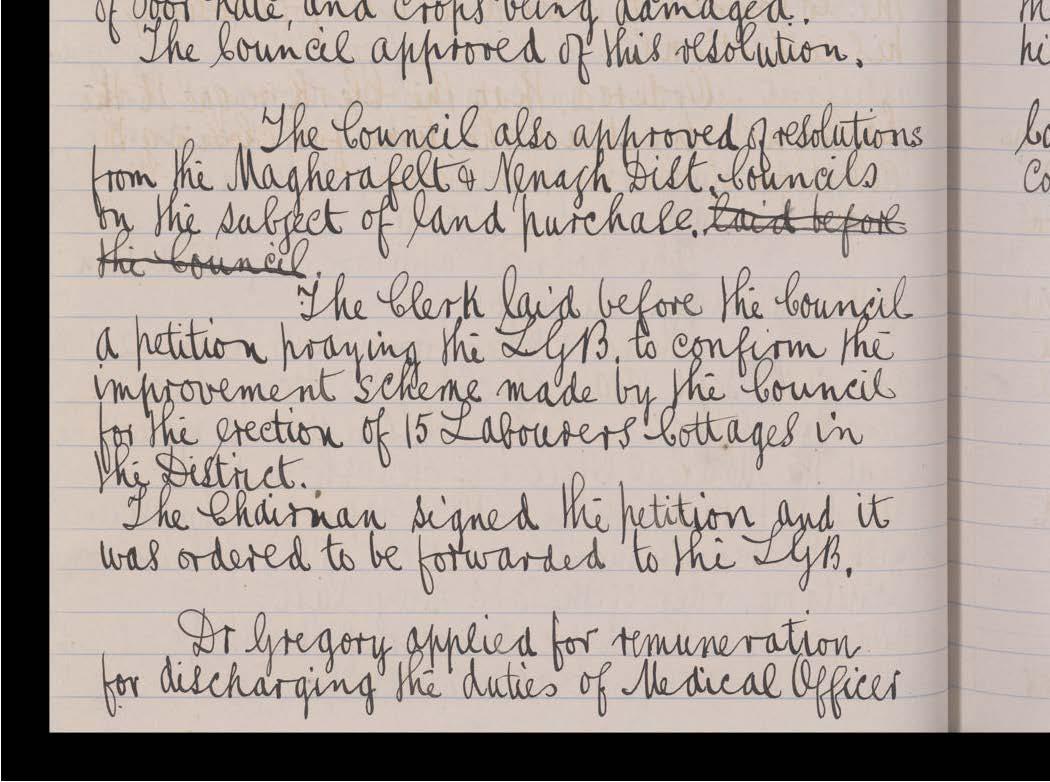 of Poor Rate, and crops being damaged.
The Council approved of this resolution.
The Council also approved of resolutions
from the Magherafelt & Nenagh Dist. Councils
on the subject of land purchase. laid before
the Council.
The Clerk laid before the Council
a petition praying the LGB. to confirm the
improvement scheme made by the Council
for the erection of 15 Labourers Cottages in
the District.
The Chairman signed the petition and it
was ordered to be forwarded to the LGB.
Dr Gregory applied for remuneration
for discharging the duties of Medical Officer